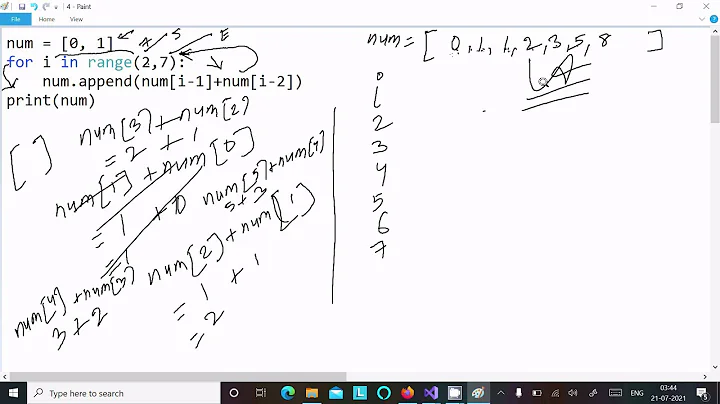 4 - Paint
File Home View
num = [0, 1]
S E
for i in range(2,7):
num.append(num[i-1]+num[i-2])
print(num)
num = [ 0, 1, 1, 2, 3, 5, 8 ]
[ ]
num[3]+num[2]
= 2 + 1
num[1] + num[0]
= 1 + 0
= 1
num[5]+num[4]
5 + 3
num[2] + num[1]
= 1 + 1
= 2
num[4] + num[3]
3 + 2
i
1
2
3
4
5
6
7
Type here to search
ENG
03:44
21-07-2021